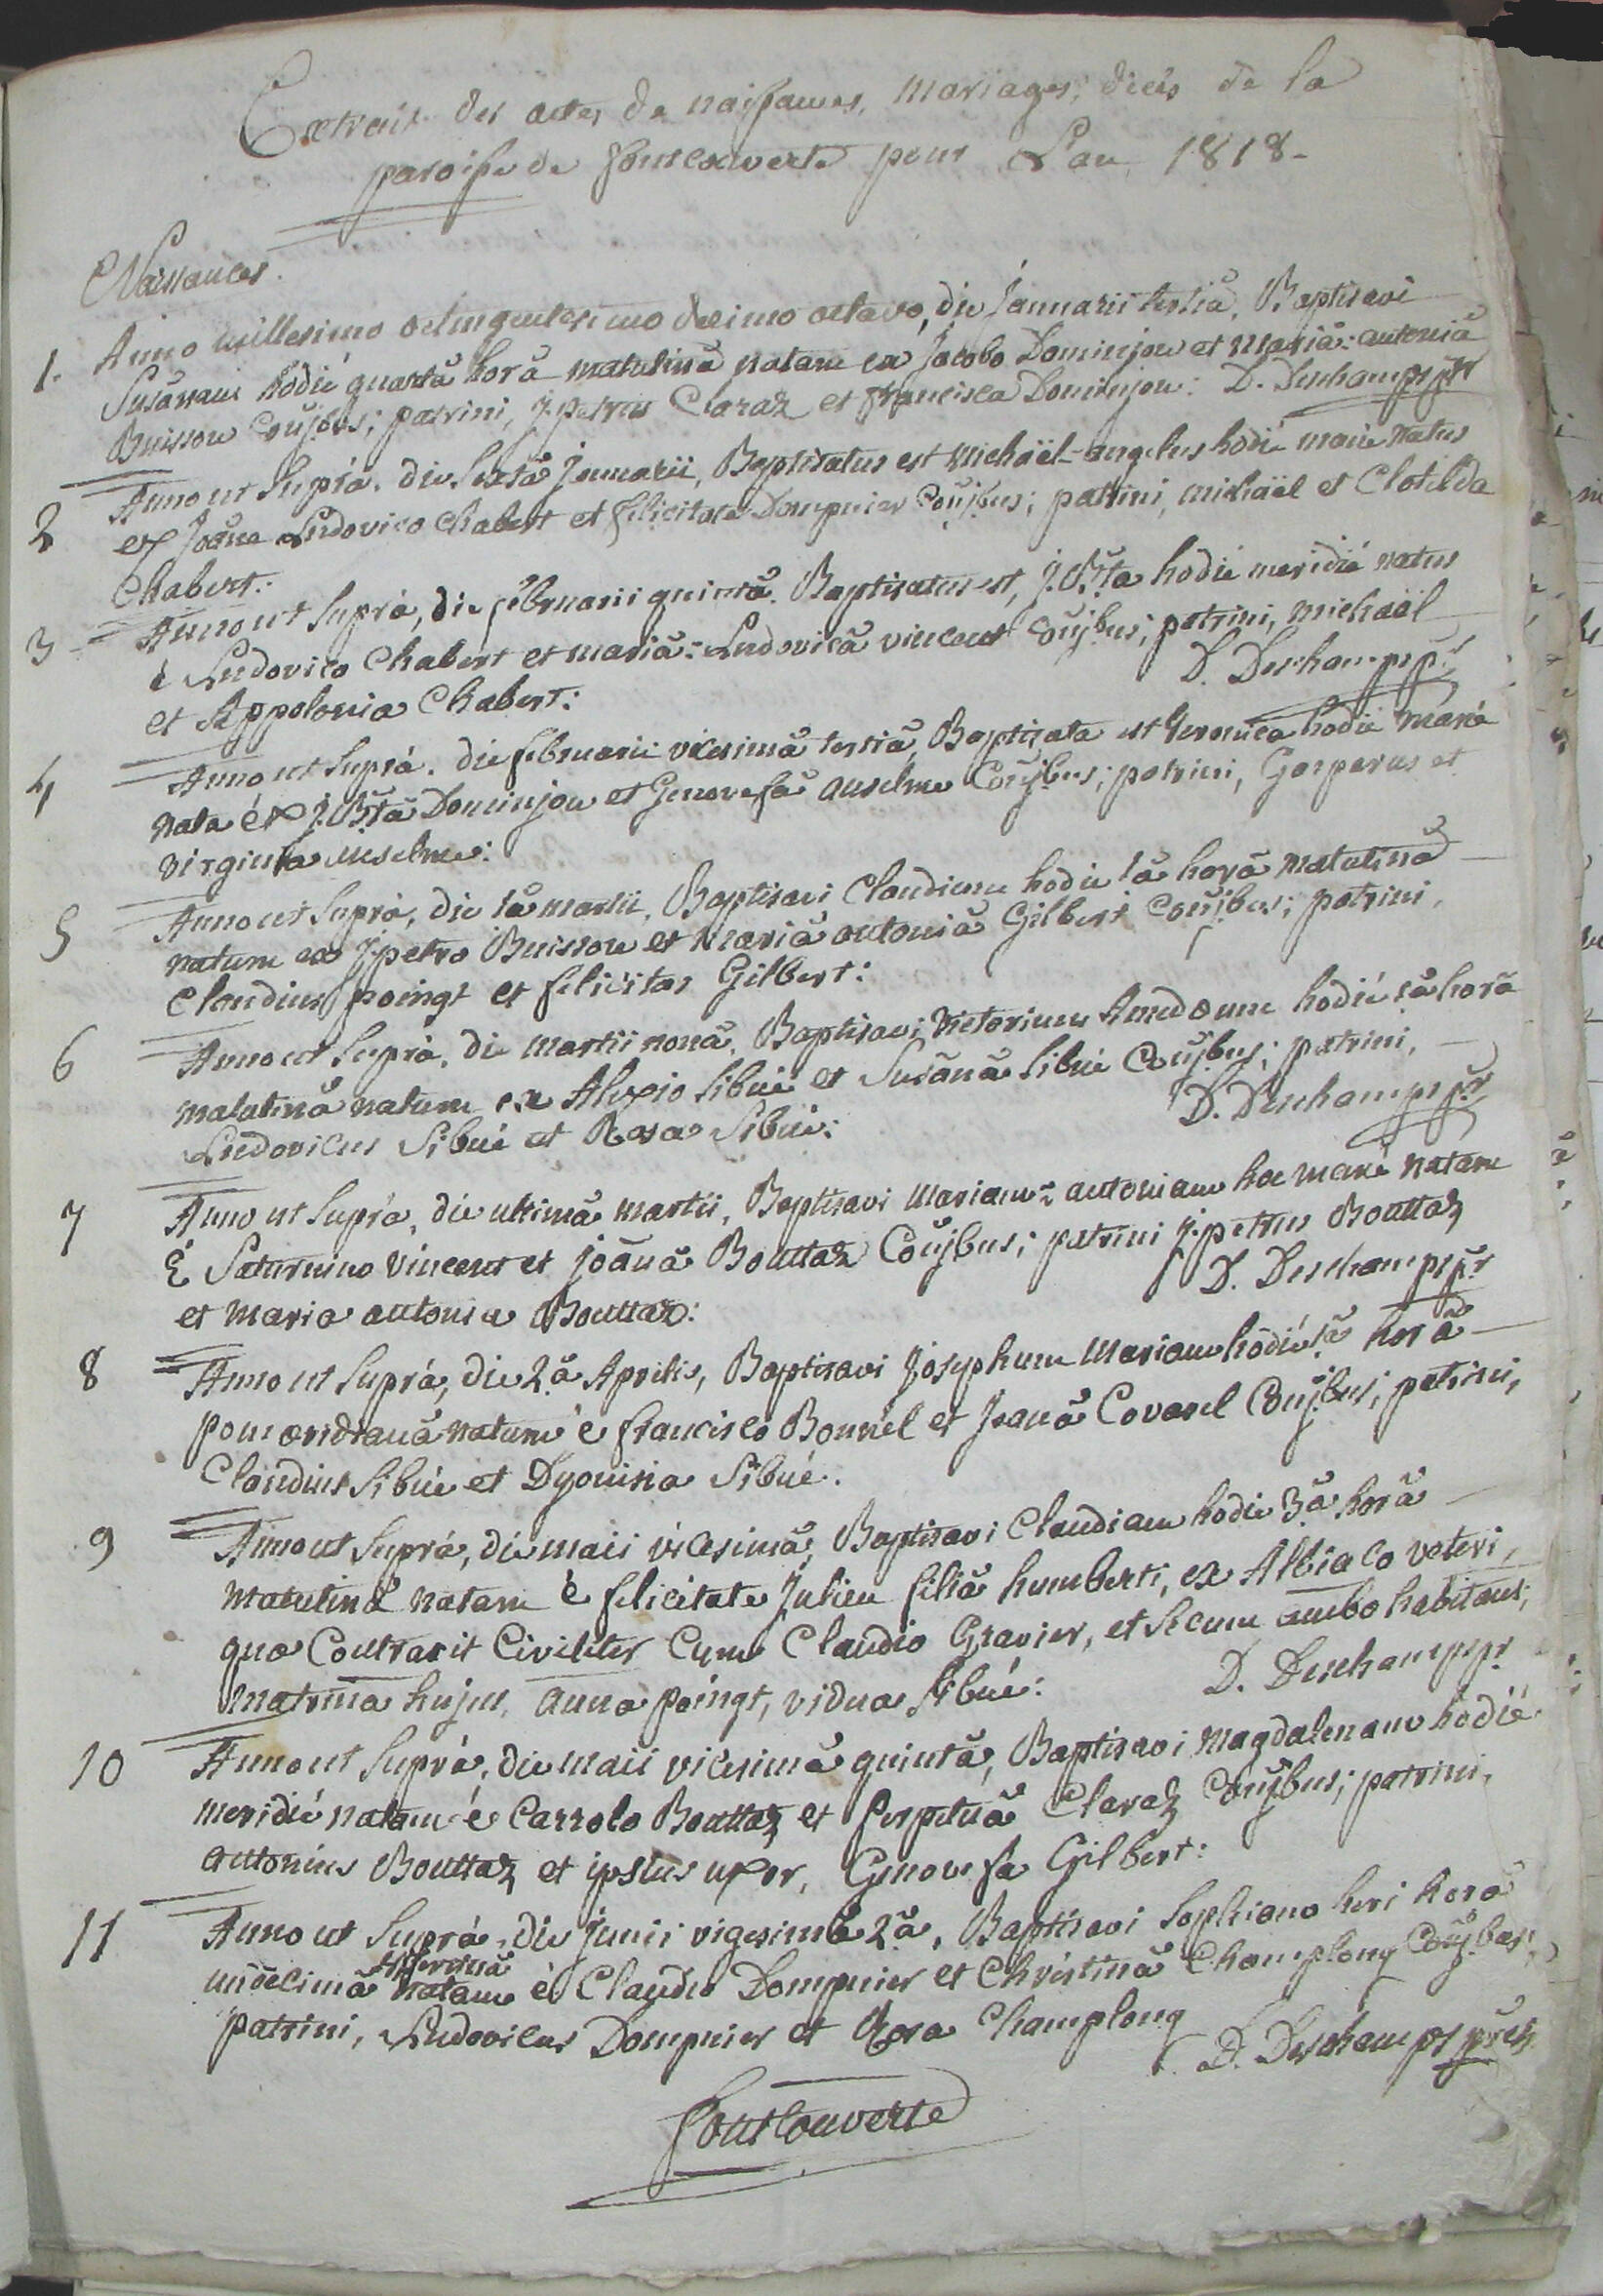 Extrait des actes de naissances, mariages, décès de la
paroisse de fontcouverte pour L'an 1818-
Naissances.
1. Anno millesimo octingentesimo decimo octavo, die Januarii tertiâ, Baptisavi
Susãnam hodiè quartâ horâ matutinâ natam ex Jacobo Dominjon et Mariâ-antoniâ
Buisson Coñjbus; patrini, j.petrus Claraz et francisca Dominjon: D. Deschamps ptr
2 Anno ut Suprà. die Sextâ Januarii, Baptisatus est Michaël-angelus hodiè manè natus
ex Joãne Ludovico Chabert et felicitate Dompnier Coñjbus; patrini, michaël et Clotilda
Chabert:
3 Anno ut Suprà, die februarii quintâ. Baptisatus est, J.Bta hodiè meridiè natus
è Ludovico Chabert et mariâ-Ludovicâ vincent Coñjbus; patrini, michaël
et Appolonia Chabert: D. Deschamps ptr
4 Anno ut Suprà. die februarii vicesimâ tertiâ, Baptisata est Veronica hodiè manè
nata ex J.Btâ Dominjon et Genovefâ anselme Coñjbus; patrini, Gasparus et
virginia anselme:
5 Anno ut Suprà, die 1â martii, Baptisavi Claudium hodiè 1â horâ matutinâ
natum ex J.petro Buisson et Mariâ antoniâ Gilbert Coñjbus; patrini,
Claudius poingt et felicitas Gilbert:
6 Anno ut Suprà, die martii nonâ, Baptisavi Victorium Amedeum hodiè 1â horâ
matutinâ natum ex Alexio Sibué et Susãnâ Sibué Coñjbus; patrini,
Ludovicus Sibué et Rosa Sibué: D. Deschamps ptr
7 Anno ut Suprà, die ultimâ martii, Baptisavi Mariam-antoniam hoc manè natam
È Saturnino Vincent et joãnâ Bouttaz Coñjbus; patrini j.petrus Bouttaz
et Maria antonia Bouttaz: D. Deschamps ptr
8 Anno ut Suprà, die 2â Aprilis, Baptisavi Josephum Mariam hodiè 1â horâ
pomoeridianâ natum è francisco Bonnel et Joanâ Covarel Coñjbus; patrini,
Claudius Sibué et Dyonisia Sibué.
9 Anno ut Suprà, die maii vicesimâ, Baptisavi Claudiam hodiè 3â horâ
matutinâ natam è felicitate Julien filiâ humberti, ex Albiaco veteri,
quae Contraxit Civiliter Cum Claudio Gravier, et Secum ambo habitant;
Matrina hujus, Anna poingt, vidua Sibué: D. Deschamps ptr
10 Anno ut Suprà, die maii vicesimâ quintâ, Baptisavi Magdalenam hodiè
meridiè natam è Carrolo Bouttaz et perpetuâ Claraz Coñjbus; patrini,
Antonius Bouttaz et ipsius uxor, Genovefa Gilbert:
11 Anno ut Suprà, die Junii vigesimâ 2â, Baptisavi Sophiam heri horâ
undecimâ natam è Claudio Dompnier et Christinâ Champlong Coñjbus;
patrini, Ludovicus Dompnier et Rosa Champlong
D. Deschamps
fontcouverte